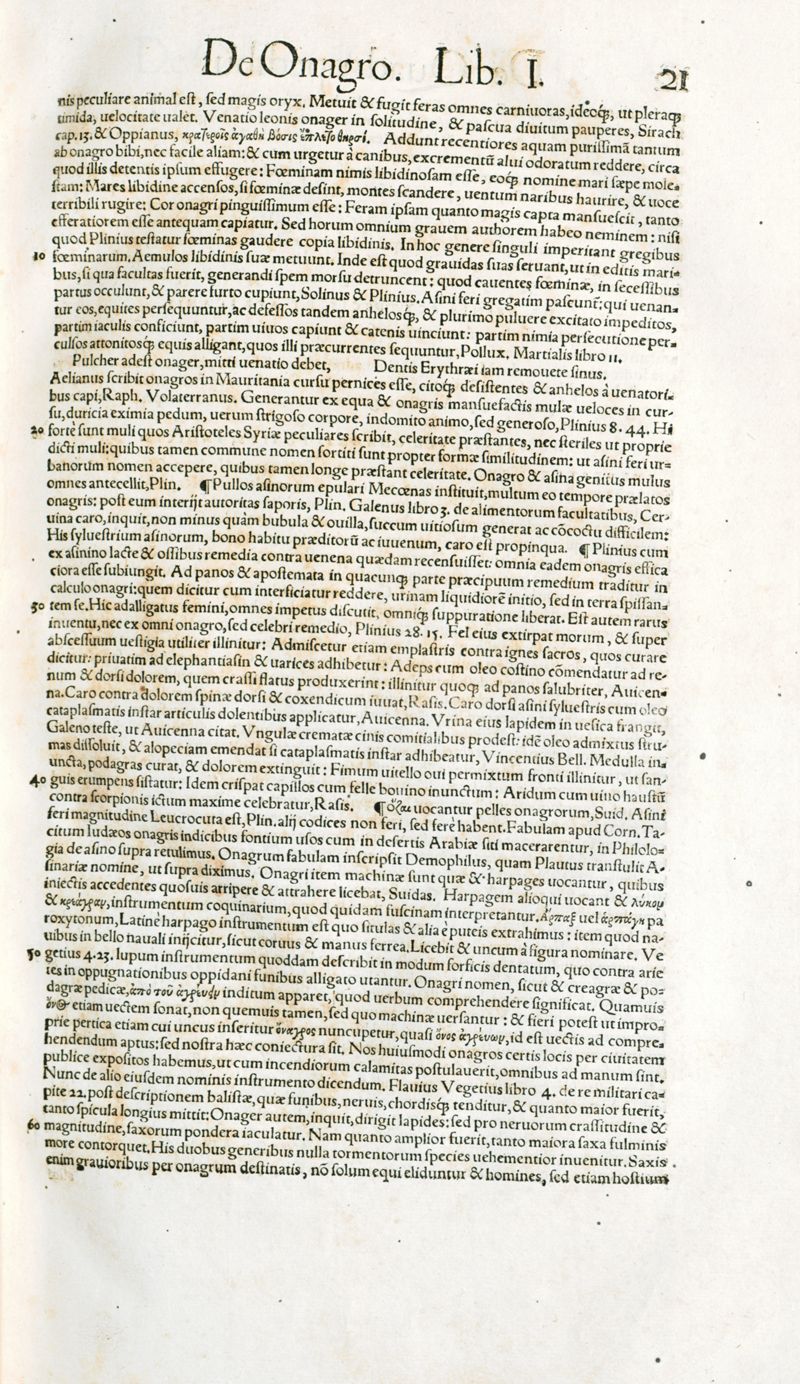 De Onagro. Lib. I. 21
nis peculiare animal est, sed magis oryx. Metuit & fugit feras omnes carniuoras, ideoq́;, ut pleraq́;
timida, uelocitate ualet. Venatio leonis onager in solitudine, & pascua diuitum pauperes, Sirach
cap. 13. & Oppianus, Addunt recentiores aquam purissimā tantum
ab onagro bibi, nec facile aliam: & cum urgetur à canibus, excrementū alui odoratum reddere, circa
quod illis detentis ipsum effugere: Fœminam nimis libidinosam esse, eoq́; nomine mari sæpe mole-
stam: Mares libidine accensos, si fœminæ desint, montes scandere, uentum naribus haurire, & uoce
terribili rugire: Cor onagri pinguissimum esse: Feram ipsam quanto magis capta mansuescit, tanto
efferatiorem esse antequam capiatur. Sed horum omnium grauem authorem habeo neminem: nisi
quod Plinius testatur fœminas gaudere copia libidinis. In hoc genere singuli imperitant gregibus
10 fœminarum. Aemulos libidinis suæ metuunt. Inde est quod grauidas suas seruant, ut in editis mari-
bus, si qua facultas fuerit, generandi spem morsu detruncent: quod cauentes fœminæ, in secessibus
partus occulunt, & parere furto cupiunt, Solinus & Plinius. Asini feri gregatim pascunt: qui uenan-
tur eos, equites persequuntur, ac defessos tandem anhelosq́;, & plurimo puluere excitato impeditos,
partim iaculis conficiunt, partim uiuos capiunt & catenis uinciunt: partim nimia persecutione per-
culsos attonitosq́; equis alligant, quos illi præcurrentes sequuntur, Pollux. Martialis libro 11.
Pulcher adest onager, mitti uenatio debet, Dentis Erythræi iam remouete sinus.
Aelianus scribit onagros in Mauritania cursu pernices esse, citoq́; desistentes & anhelos à uenatori-
bus capi, Raph. Volaterranus. Generantur ex equa & onagris mansuefactis mulæ ueloces in cur-
su, duricia eximia pedum, uerum strigoso corpore, indomito animo, sed generoso, Plinius 8. 44. Hi
20 fortè sunt muli quos Aristoteles Syriæ peculiares scribit, celeritate præstantes, nec steriles ut proprie
dicti muli: quibus tamen commune nomen sortiti sunt propter formæ similitudinem: ut asini feri ur-
banorum nomen accepere, quibus tamen longe præstant celeritate. Onagro & asina genitus mulus
omnes antecellit, Plin. ¶ Pullos asinorum epulari Mecœnas instituit, multum eo tempore prælatos
onagris: post eum interijt autoritas saporis, Plin. Galenus libro 3. de alimentorum facultatibus, Cer-
uina caro, inquit, non minus quàm bubula & ouilla, succum uitiosum generat ac cōcoctu difficilem:
His syluestrium asinorum, bono habitu præditorū ac iuuenum, caro est propinqua. ¶ Plinius cum
ex asinino lacte & ossibus remedia contra uenena quædam recensuisset: omnia eadem onagris effica
ciora esse subiungit. Ad panos & apostemata in quacunq́; parte præcipuum remedium traditur in
calculo onagri: quem dicitur cum interficiatur reddere, urinam liquidiorē initio, sed in terra spissan-
30 tem se. Hic adalligatus femini, omnes impetus discutit, omniq́; suppuratione liberat. Est autem rarus
inuentu, nec ex omni onagro, sed celebri remedio, Plinius 28. 15. Fel eius extirpat morum, & super
abscessuum uestigia utiliter illinitur: Admiscetur etiam emplastris contra ignes sacros, quos curare
dicitur: priuatim ad elephantiasin & uarices adhibetur: Adeps cum oleo costino cōmendatur ad re-
num & dorsi dolorem, quem crassi flatus produxerint: illinitur quoq́; ad panos salubriter, Auicen-
na. Caro contra dolorem spinæ dorsi & coxendicum iuuat, Rasis. Caro dorsi asini syluestris cum oleo
cataplasmatis instar articulis dolentibus applicatur, Auicenna. Vrina eius lapidem in uesica frangit,
Galeno teste, ut Auicenna citat. Vngulæ crematæ cinis comitialibus prodest: idē oleo admixtus stru-
mas dissoluit, & alopeciam emendat si cataplasmatis instar adhibeatur, Vincentius Bell. Medulla in-
uncta, podagras curat, & dolorem extinguit: Fimum uitello oui permixtum fronti illinitur, ut san-
40 guis erumpens sistatur: Idem crispat capillos cum felle bouino inunctum: Aridum cum uino haustū
contra scorpionis ictum maxime celebratur, Rasis. ¶ uocantur pelles onagrorum, Suid. Asini
feri magnitudine Leucrocuta est, Plin. alij codices non feri, sed ferè habent. Fabulam apud Corn. Ta-
citum Iudæos onagris indicibus fontium usos cum in desertis Arabiæ siti macerarentur, in Philolo-
gia de asino supra retulimus. Onagrum fabulam inscripsit Demophilus, quam Plautus transtulit A-
sinariæ nomine, ut supra diximus. Onagri item machinæ sunt quæ & harpages uocantur, quibus
iniectis accedentes quosuis arripere & attrahere licebat, Suidas. Harpagem alioqui uocant & λύκον
& κρεάγραν, instrumentum coquinarium, quod quidam fuscinam interpretantur. Ἅρπαξ uel ἁρπάγη pa
roxytonum, Latinè harpago instrumentum est quo situlas & alia è puteis extrahimus: item quod na-
uibus in bello nauali inijcitur, sicut coruus & manus ferrea. Licebit & uncum à figura nominare. Ve
50 getius 4. 23. lupum instrumentum quoddam describit in modum forficis dentatum, quo contra arie
tes in oppugnationibus oppidani funibus alligato utantur. Onagri nomen, sicut & creagræ & po-
dagræ pedicæ, ἀπὸ τοῦ ἀγρεύειν inditum apparet, quod uerbum comprehendere significat. Quamuis
ὄνος etiam uectem sonat, non quemuis tamen, sed quo machinæ uersantur: & fieri potest ut impro-
prie pertica etiam cui uncus inseritur ὄναγρος nuncupetur, quasi ὄνος ἀγρεύων, id est uectis ad compre-
hendendum aptus: sed nostra hæc coniectura sit. Nos huiusmodi onagros certis locis per ciuitatem
publice expositos habemus, ut cum incendiorum calamitas postulauerit, omnibus ad manum sint.
Nunc de alio eiusdem nominis instrumento dicendum. Flauius Vegetius libro 4. de re militari ca-
pite 22. post descriptionem balistæ, quæ funibus, neruis, chordisq́; tenditur, & quanto maior fuerit,
tanto spicula longius mittit: Onager autem, inquit, dirigit lapides: sed pro neruorum crassitudine &
60 magnitudine, saxorum pondera iaculatur. Nam quanto amplior fuerit, tanto maiora saxa fulminis
more contorquet. His duobus generibus nulla tormentorum species uehementior inuenitur. Saxis
enim grauioribus per onagrum destinatis, nō solum equi eliduntur & homines, sed etiam hostium